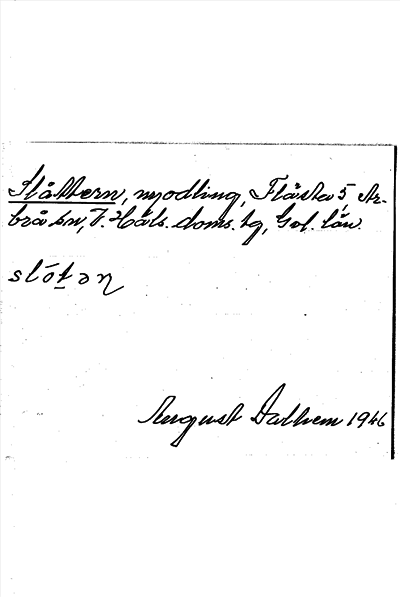 Slåttern, nyodling, Flästa 5, Ar-
brå sn, V. Häls. doms. tg, Gvl. län.
slótəɳ
August Dalhem 1946